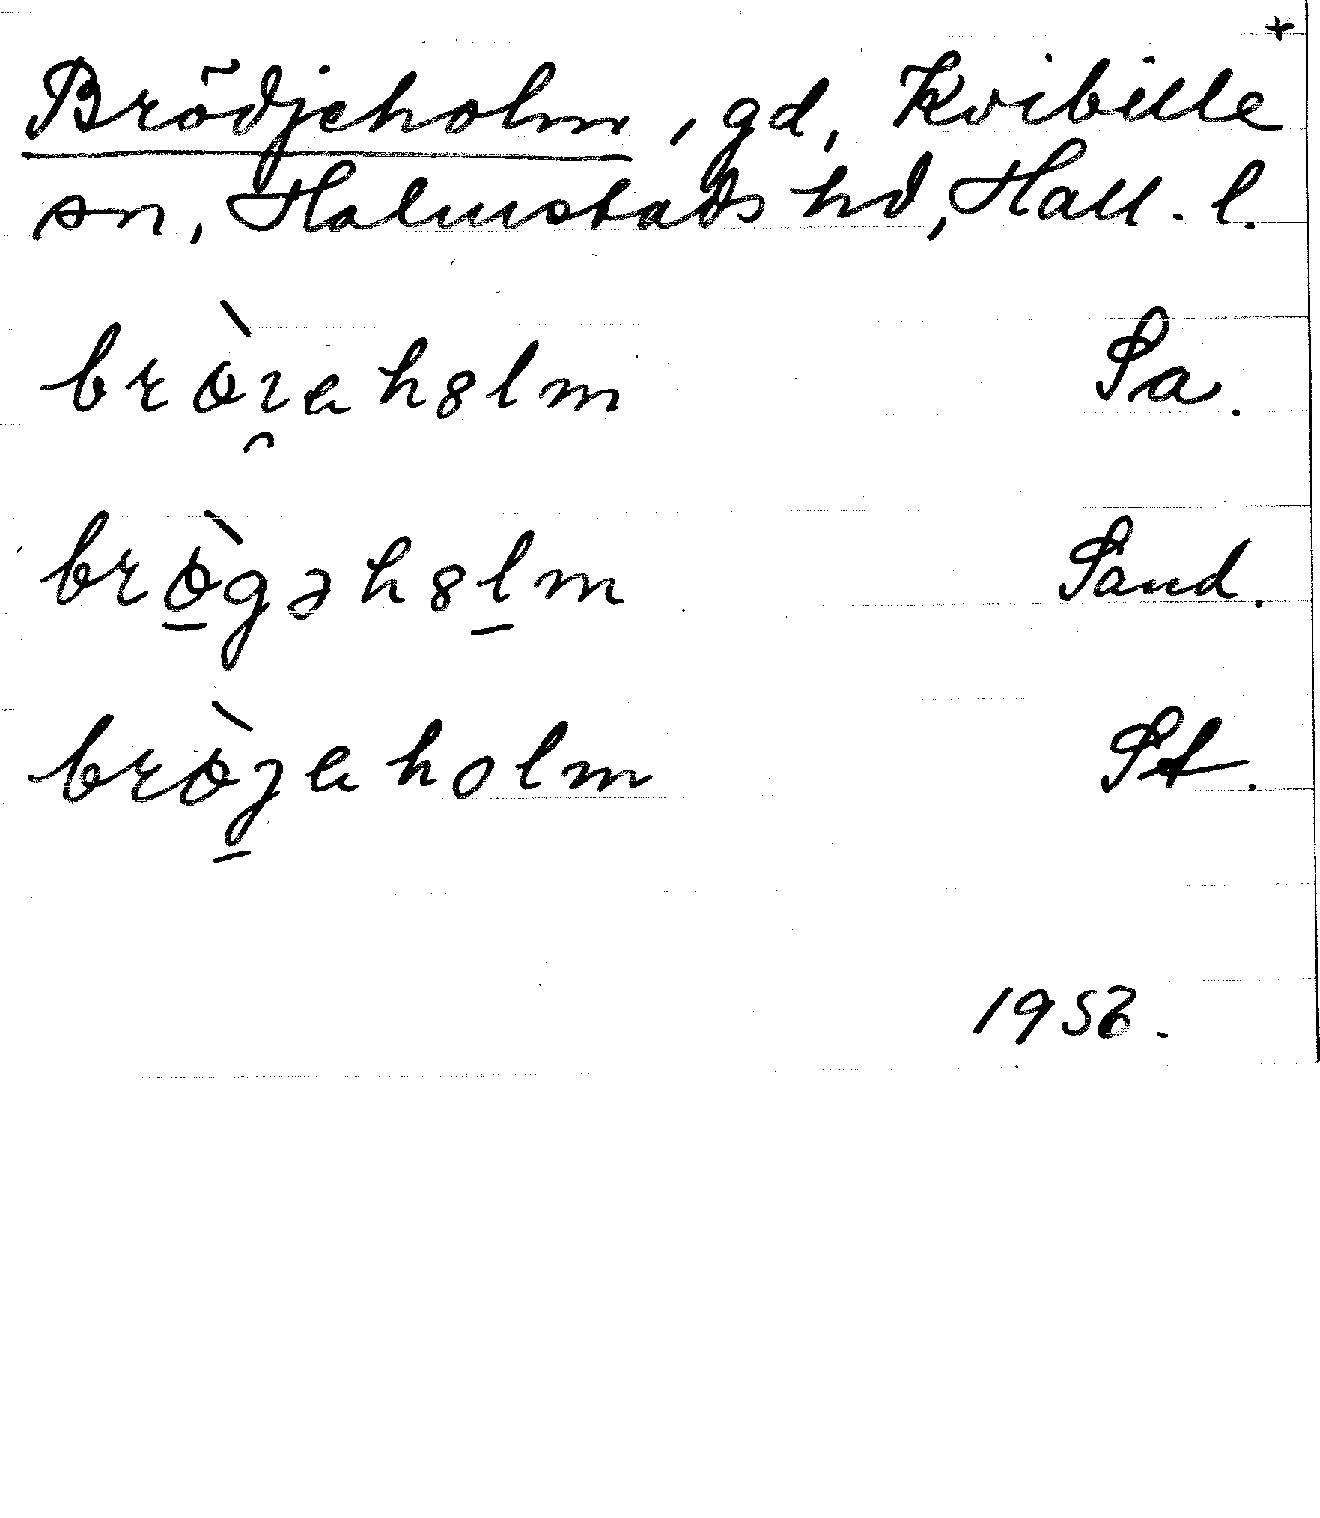 +
Brödjeholm, gd, Kvibille
sn, Halmstads hd, Hall. l.
brø̀ı̯eholm Sa.
brø̠̀gəhol̠m Sand.
brø̀ȷ̠eholm St.
1956.